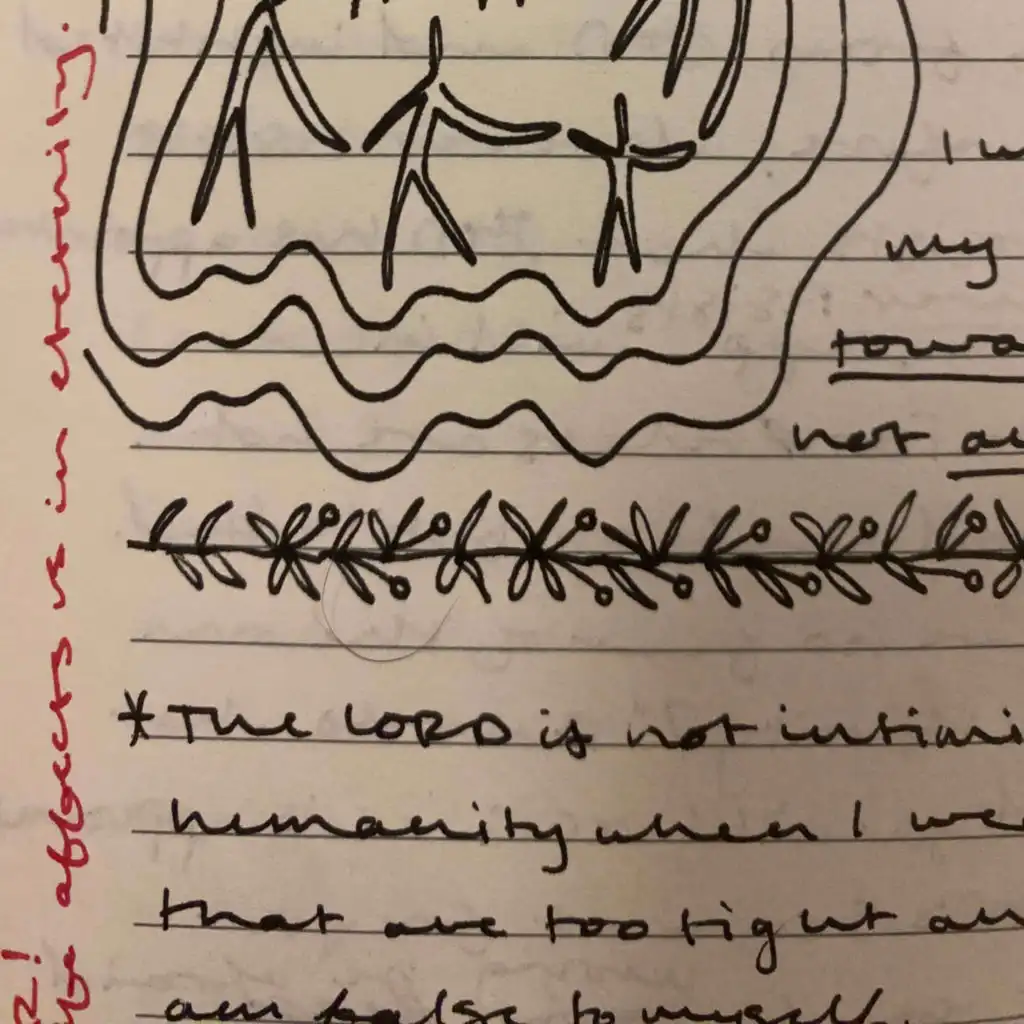 I w
my
towa
not
* The LORD is not intimi
humanity when I we
that are too tight an
am false to myself.
affects us in eternity.
R!